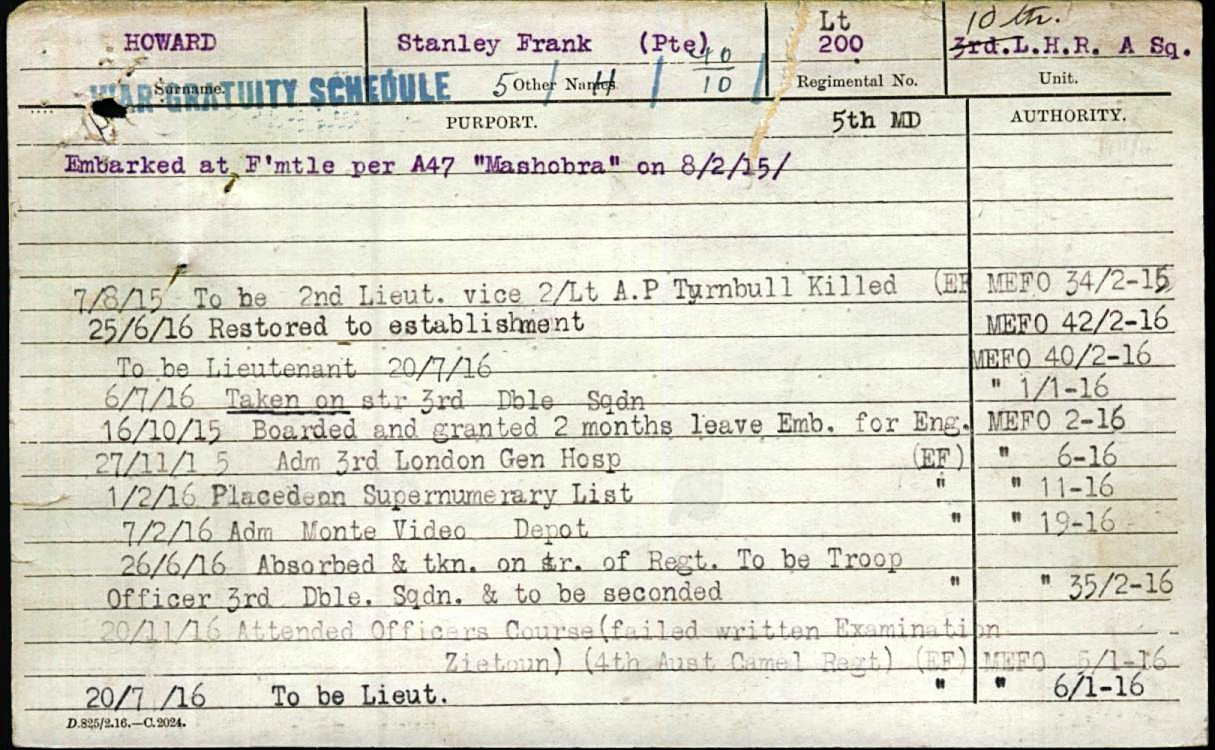 10th.
HOWARD Stanley Frank (Pte) Lt 200 3rd.L.H.R. A Sq.
40/10
Surname. 5 Other Names Regimental No. Unit.
WAR GRATUITY SCHEDULE
PURPORT. 5th MD AUTHORITY.
Embarked at F'mtle per A47 "Mashobra" on 8/2/15/
7/8/15 To be 2nd Lieut. vice 2/Lt A.P Turnbull Killed (EF MEFO 34/2-15
25/6/16 Restored to establishment MEFO 42/2-16
To be Lieutenant 20/7/16 MEFO 40/2-16
6/7/16 Taken on str 3rd Dble Sqdn " 1/1-16
16/10/15 Boarded and granted 2 months leave Emb. for Eng. MEFO 2-16
27/11/1 5 Adm 3rd London Gen Hosp (EF) " 6-16
1/2/16 Placedeon Supernumerary List " " 11-16
7/2/16 Adm Monte Video Depot " " 19-16
26/6/16 Absorbed & tkn. on sr. of Regt. To be Troop
Officer 3rd Dble. Sqdn. & to be seconded " " 35/2-16
20/11/16 Attended Officers Course(failed written Examination
Zietoun) (4th Aust Camel Regt) (EF) MEFO 5/1-16
20/7 /16 To be Lieut. " " 6/1-16
D.825/2.16.—C.2024.